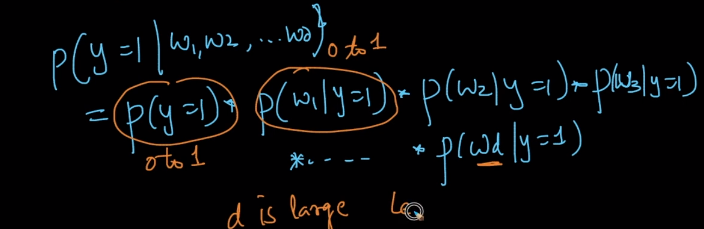 P(y=1|w1,w2,...wd} 0 to 1
= P(y=1)* P(w1|y=1) * P(w2|y=1)* P(w3|y=1)
0 to 1 *.---- * P(wd|y=1)
d is large